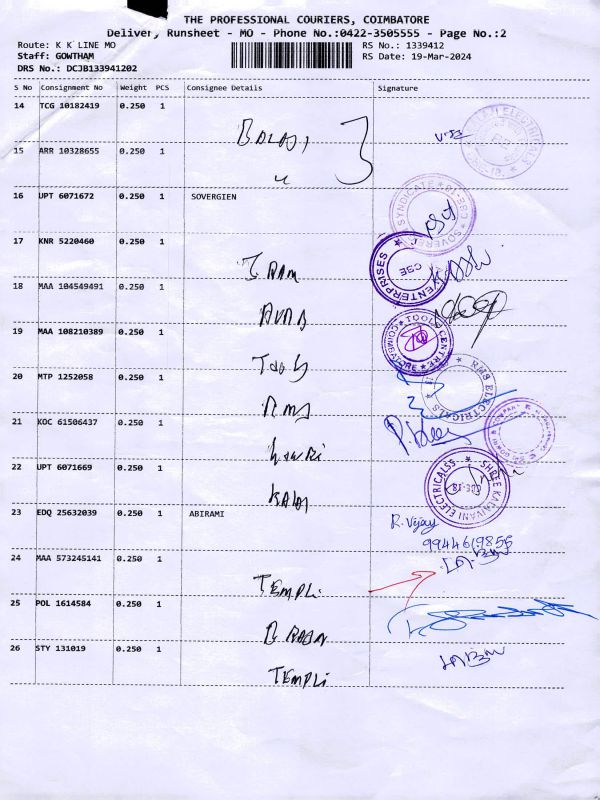 THE PROFESSIONAL COURIERS, COIMBATORE
Delivery Runsheet - MO - Phone No.:0422-3505555 - Page No.:2
Route: K K LINE MO
RS No.: 1339412
Staff: GOWTHAM
RS Date: 19-Mar-2024
DRS No.: DCJB133941202
S No Consignment No Weight PCS Consignee Details Signature
14 TCG 10182419 0.250 1
BALAJI
15 ARR 10328655 0.250 1
16 UPT 6071672 0.250 1 SOVERGIEN
SYNDICATE
17 KNR 5220460 0.250 1
ENTERPRISES
CBE
RAM
18 MAA 104549491 0.250 1
19 MAA 108210389 0.250 1
TOOLS CENTRE
Tools
20 MTP 1252058 0.250 1
RMS ELECTRICALS
RMS
21 KOC 61506437 0.250 1
22 UPT 6071669 0.250 1
SHREE KALAIVANI ELECTRICALSS
23 EDQ 25632039 0.250 1 ABIRAMI
R. Vijay
9944619855
24 MAA 573245141 0.250 1
TEMPLi
25 POL 1614584 0.250 1
26 STY 131019 0.250 1
TEMPLi